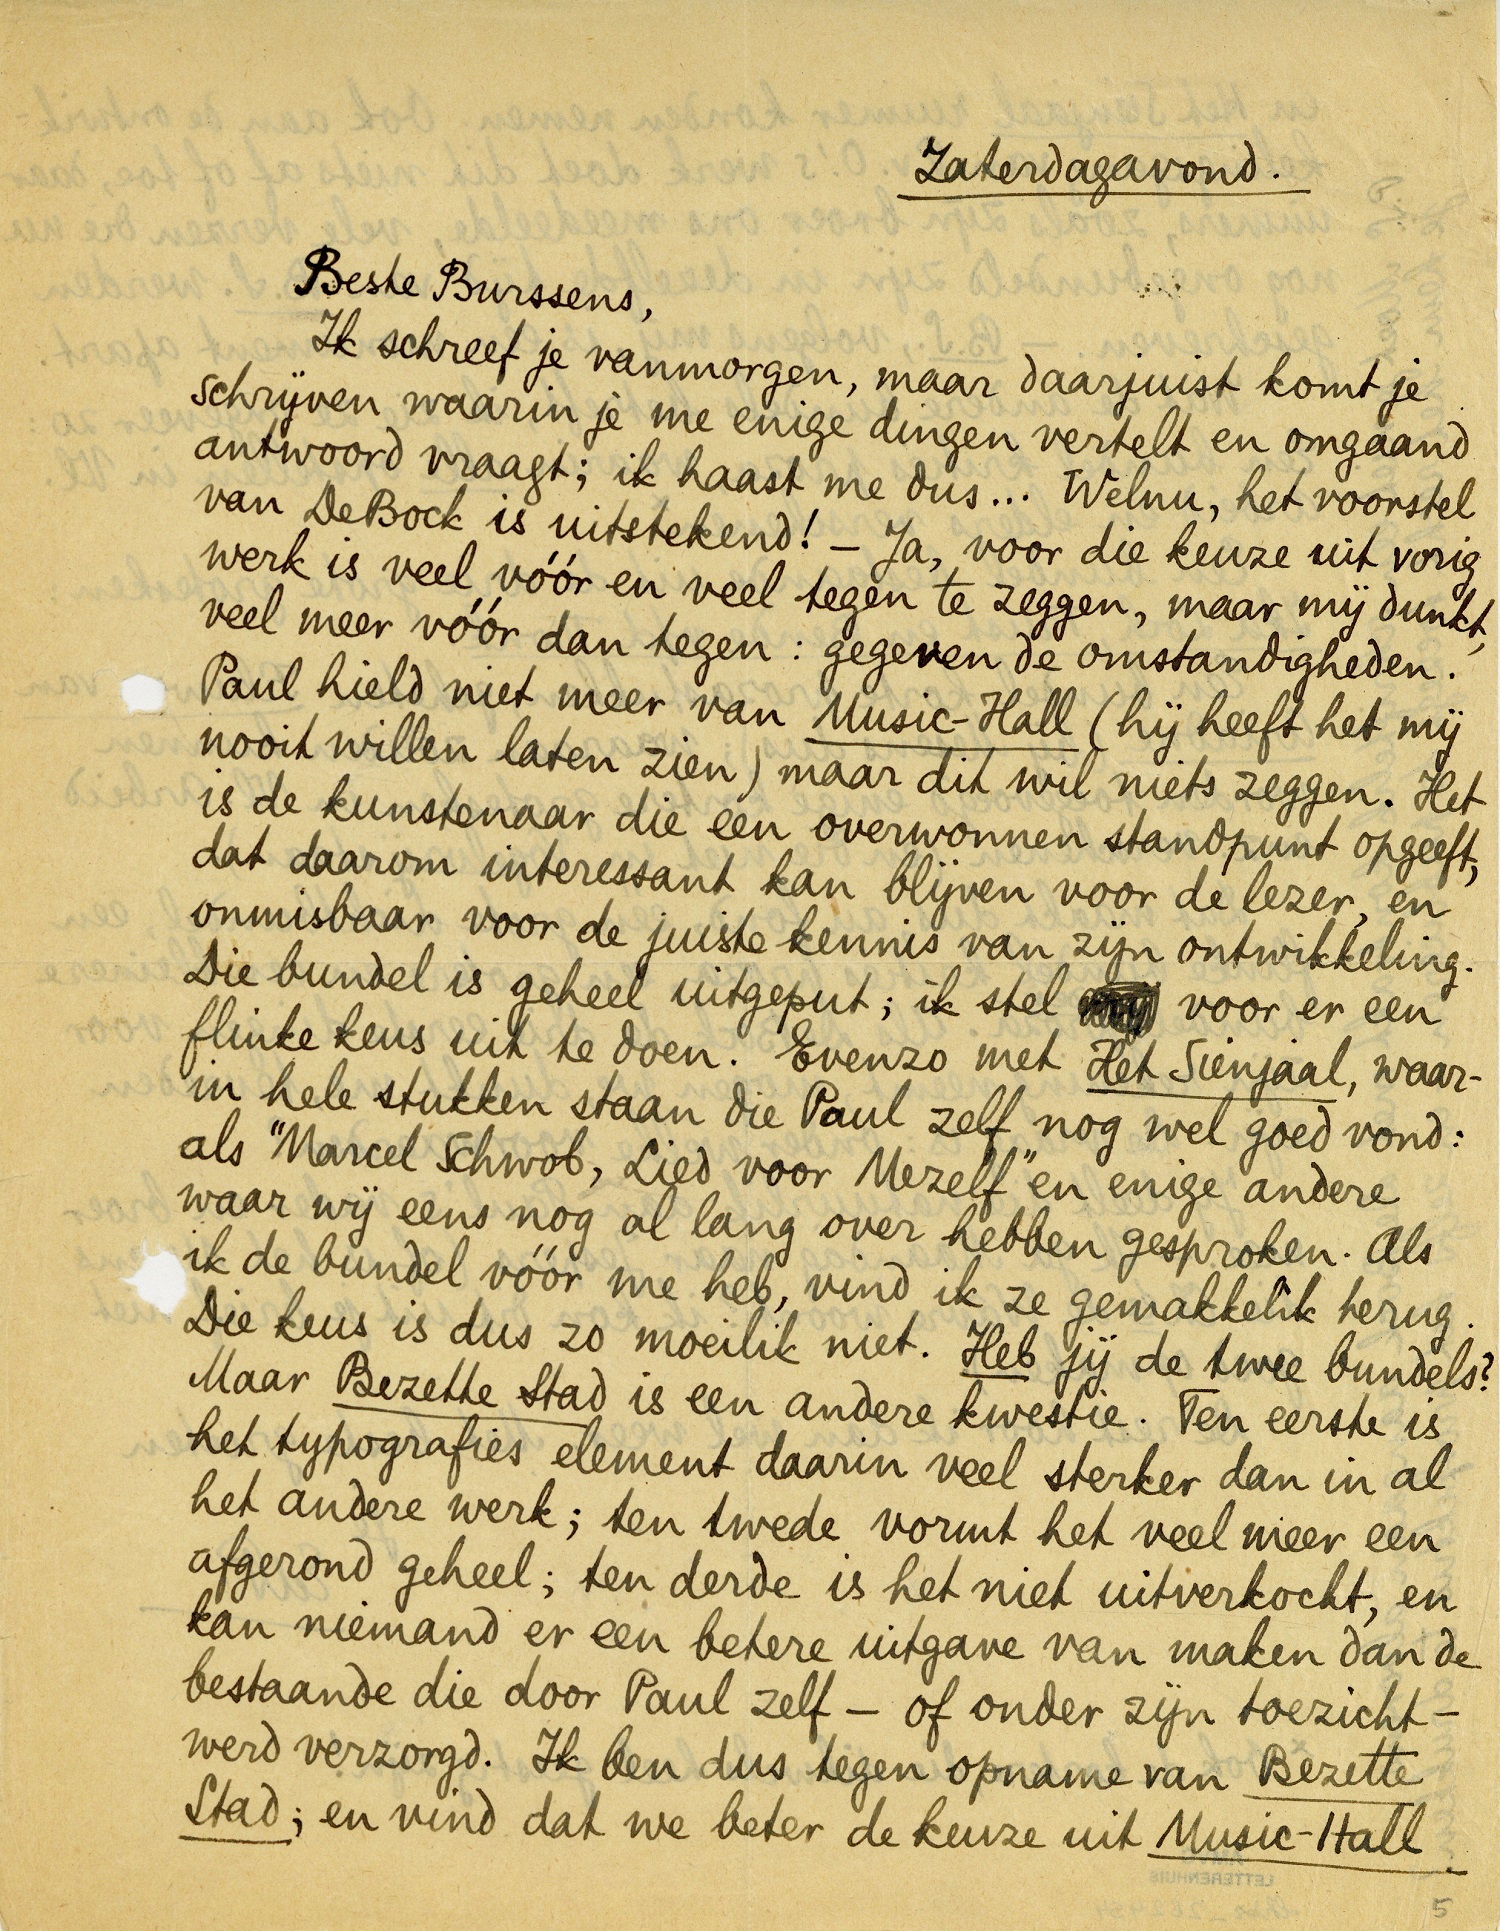 Zaterdagavond.
Beste Burssens,
Ik schreef je vanmorgen, maar daarjuist komt je
schrijven waarin je me enige dingen vertelt en omgaand
antwoord vraagt; ik haast me dus... Welnu, het voorstel
van DeBock is uitstekend! – Ja, voor die keuze uit vorig
werk is veel vóór en veel tegen te zeggen, maar mij dunkt,
veel meer vóór dan tegen: gegeven de omstandigheden.
Paul hield niet meer van Music-Hall (hij heeft het mij
nooit willen laten zien) maar dit wil niets zeggen. Het
is de kunstenaar die een overwonnen standpunt opgeeft,
dat daarom interessant kan blijven voor de lezer, en
onmisbaar voor de juiste kennis van zijn ontwikkeling.
Die bundel is geheel uitgeput; ik stel voor er een
flinke keus uit te doen. Evenzo met Het Sienjaal, waar-
in hele stukken staan die Paul zelf nog wel goed vond:
als "Marcel Schwob, Lied voor Mezelf" en enige andere
waar wij eens nog al lang over hebben gesproken. Als
ik de bundel vóór me heb, vind ik ze gemakkelik terug.
Die keus is dus zo moeilik niet. Heb jij de twee bundels?
Maar Bezette Stad is een andere kwestie. Ten eerste is
het typografies element daarin veel sterker dan in al
het andere werk; ten twede vormt het veel meer een
afgerond geheel; ten derde is het niet uitverkocht, en
kan niemand er een betere uitgave van maken dan de
bestaande die door Paul zelf – of onder zijn toezicht –
werd verzorgd. Ik ben dus tegen opname van Bezette
Stad; en vind dat we beter de keuze uit Music-Hall
5